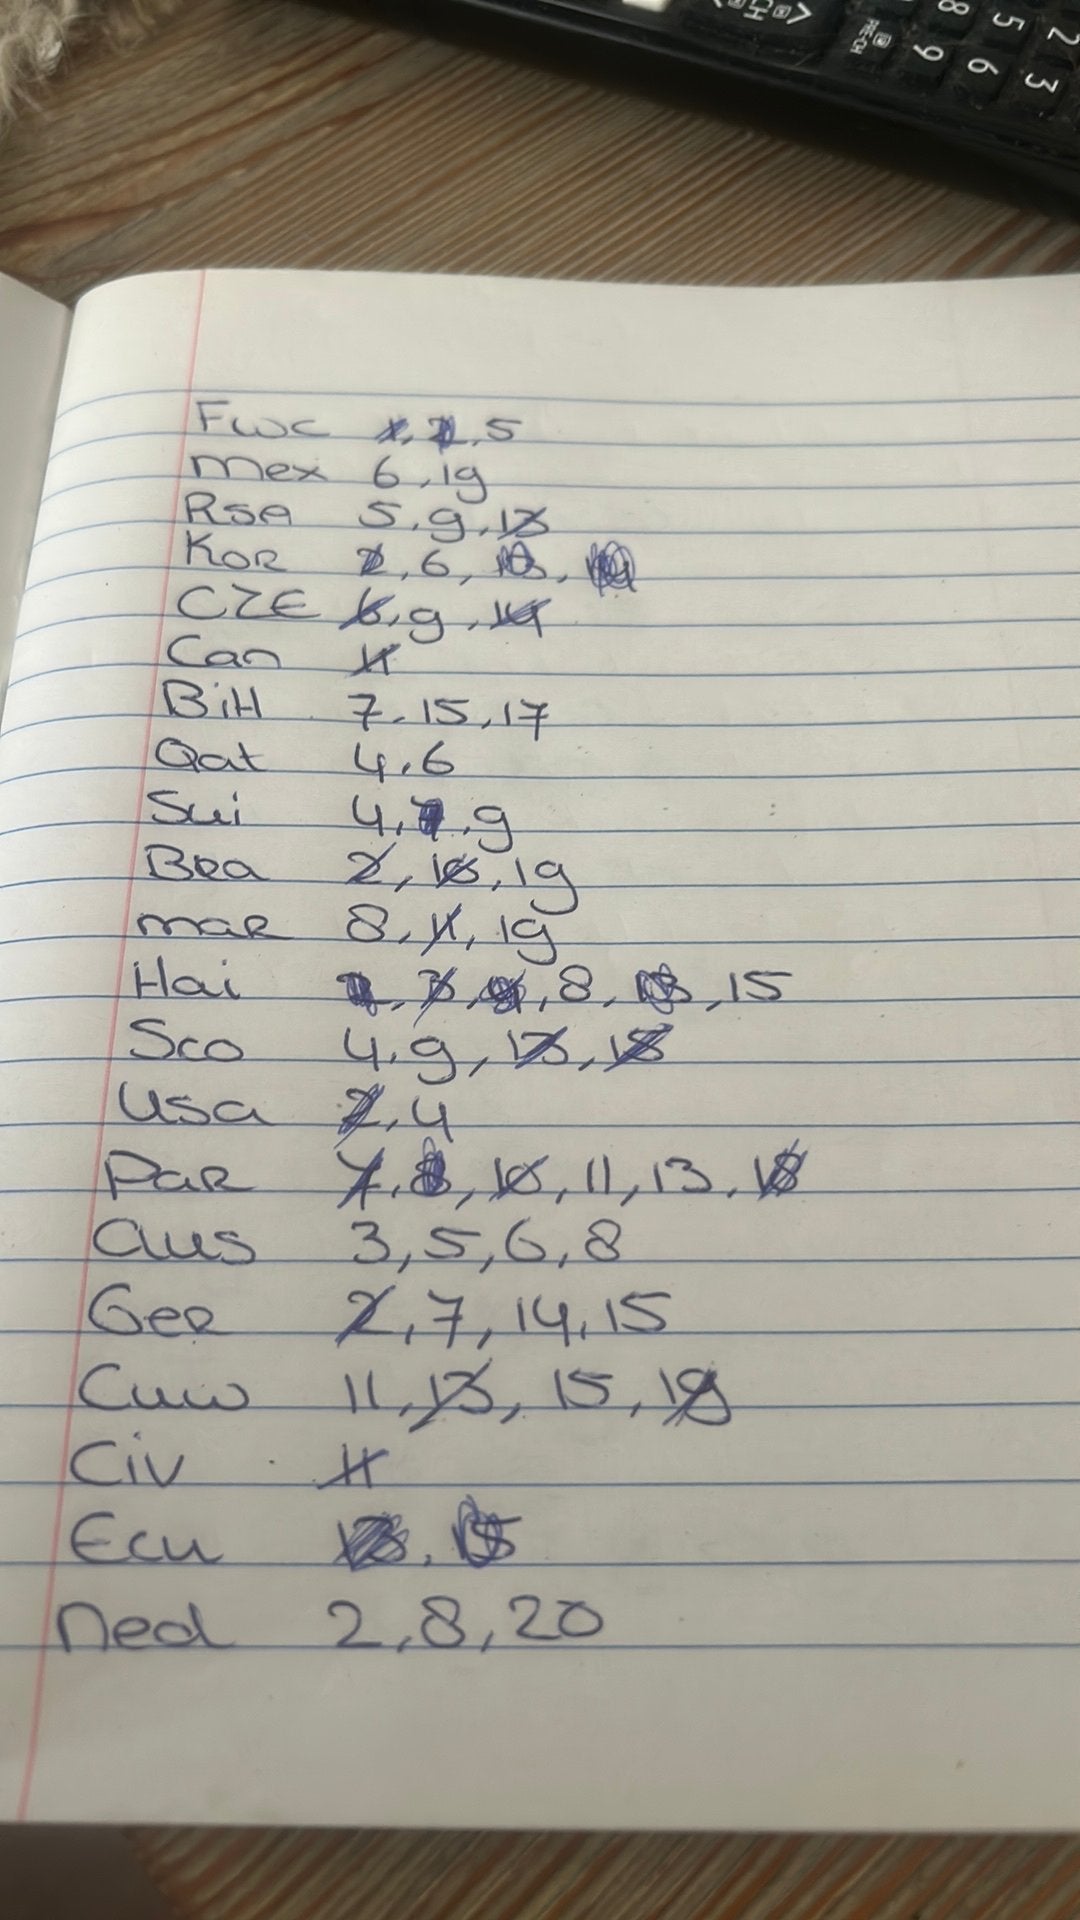 CH
8 5 2
RE-CH 9 6 3
Fwc 1, 2, 5
mex 6, 19
RSA 5, 9, 13
KOR 2, 6, 
CZE 6, 9, 14
Can 11
BiH 7, 15, 17
Qat 4, 6
Sui 4, 9
BRa 2, 10, 19
maR 8, 11, 19
Hai 3, 8, 15
Sco 4, 9, 13, 18
Usa 2, 4
PaR 7, 8, 10, 11, 13, 18
Aus 3, 5, 6, 8
GeR 2, 7, 14, 15
Cuw 11, 13, 15, 19
Civ 11
Ecu 15
ned 2, 8, 20